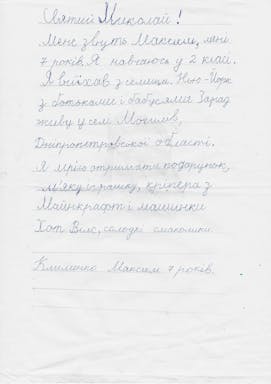 Святий Миколай!
Мене звуть Максим, мені
7 років. Я навчаюсь у 2 класі.
Я виїхав з селища Нью-Йорк
з батьками і бабусями Зараз
живу у селі Могилів,
Дніпропетровської області.
Я мрію отримати подарунок,
м'яку іграшку, кріпера з
Майнкрафт і машинки
Хот Вілс, солодкі смаколики.
Клименко Максим 7 років.